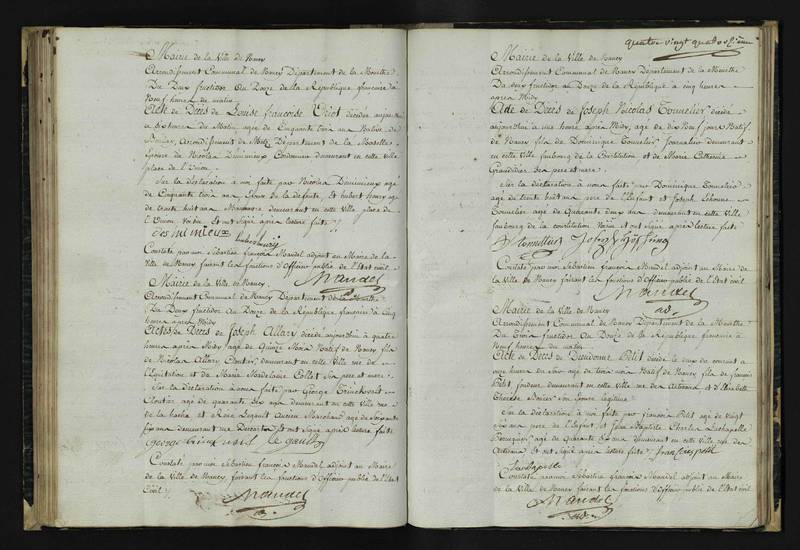 Mairie de la Ville de Nancy
Arrondissement Communal de Nancy Département de la Meurthe
Du Deux fructidor au Douze de la République française à
Neuf heures du matin
Acte de Décès de Louise françoise décédée aujourd'hui
à six heures du Matin agée de Cinquante trois ans Native de
Arrondissement de Metz Département de la Moselle,
Epouse de Nicolas Cordonnier demeurant en cette Ville
place de l'Union
Sur la déclaration à nous faite par Nicolas agé
de Cinquante trois ans Epoux de la défunte, Et hubert henry agé
de trente huit ans demeurant en cette Ville place de
l'Union Et ont signé après lecture faite
Constaté par moi Sébastien françois Mandel adjoint au Maire de la
Ville de Nancy faisant les fonctions d'Officier public de l'Etat civil
Mandel
Mairie de la Ville de Nancy
Arrondissement Communal de Nancy Département de la Meurthe
Du Deux fructidor au Douze de la République française à Cinq
heures après Midy
Acte de Décès de Joseph Allary décédé aujourd'hui à quatre
heures après Midy agé de Quinze Mois Natif de Nancy fils
de Nicolas Allary Cloutier, demeurant en cette Ville rue de
et de Marie Magdelaine Collot son pere et mere
Sur la déclaration à nous faite par George
Cloutier agé de quarante six ans demeurant en cette Ville rue
de la hache et Legault Ancien Marchand agé de Soixante
six ans demeurant rue Et ont Signé après lecture faite
george le gault
Constaté par moi Sébastien françois Mandel adjoint au Maire
de la Ville de Nancy faisant les fonctions d'Officier public de l'Etat
Civil
Mandel
quatre vingt quatorzième
Mairie de la Ville de Nancy
Arrondissement Communal de Nancy Département de la Meurthe
Du deux fructidor au Douze de la République à cinq heures
après Midy
Acte de Décès de Joseph Nicolas Tonnelier décédé
aujourd'hui à une heure après Midy, agé de dix Neuf jours Natif
de Nancy fils de Dominique Tonnelier Journalier demeurant
en cette Ville faubourg de la Constitution et de Marie Catherine
Ses pere et mere
Sur la déclaration à nous faite par Dominique Tonnelier
agé de trente huit ans pere de l'Enfant et Joseph
Tonnelier agé de Quarante deux ans demeurant en cette Ville
faubourg de la constitution et ont signé après lecture faite
Constaté par moi Sébastien françois Mandel adjoint au Maire de
la Ville de Nancy faisant les fonctions d'Officier public de l'Etat civil
Mandel
Mairie de la Ville de Nancy
Arrondissement Communal de Nancy Département de la Meurthe
Du Trois fructidor Au Douze de la République française à
Neuf heures du matin
Acte de Décès de Dieudonné Petit décédé le deux du courant à
onze heures du soir agé de trois mois Natif de Nancy fils de françois
Petit demeurant en cette Ville rue de et d'Elisabeth
Thérèse son épouse légitime
Sur la déclaration à nous faite par françois Petit agé de vingt
six ans pere de l'Enfant et Jean Baptiste Charles Lachapelle
Perruquier agé de Quarante six ans demeurant en cette Ville rue des
Et ont signé après lecture faite françois petit
Lachapelle
Constaté par moi Sébastien françois Mandel adjoint au Maire
de la Ville de Nancy faisant les fonctions d'Officier public de l'Etat civil
Mandel